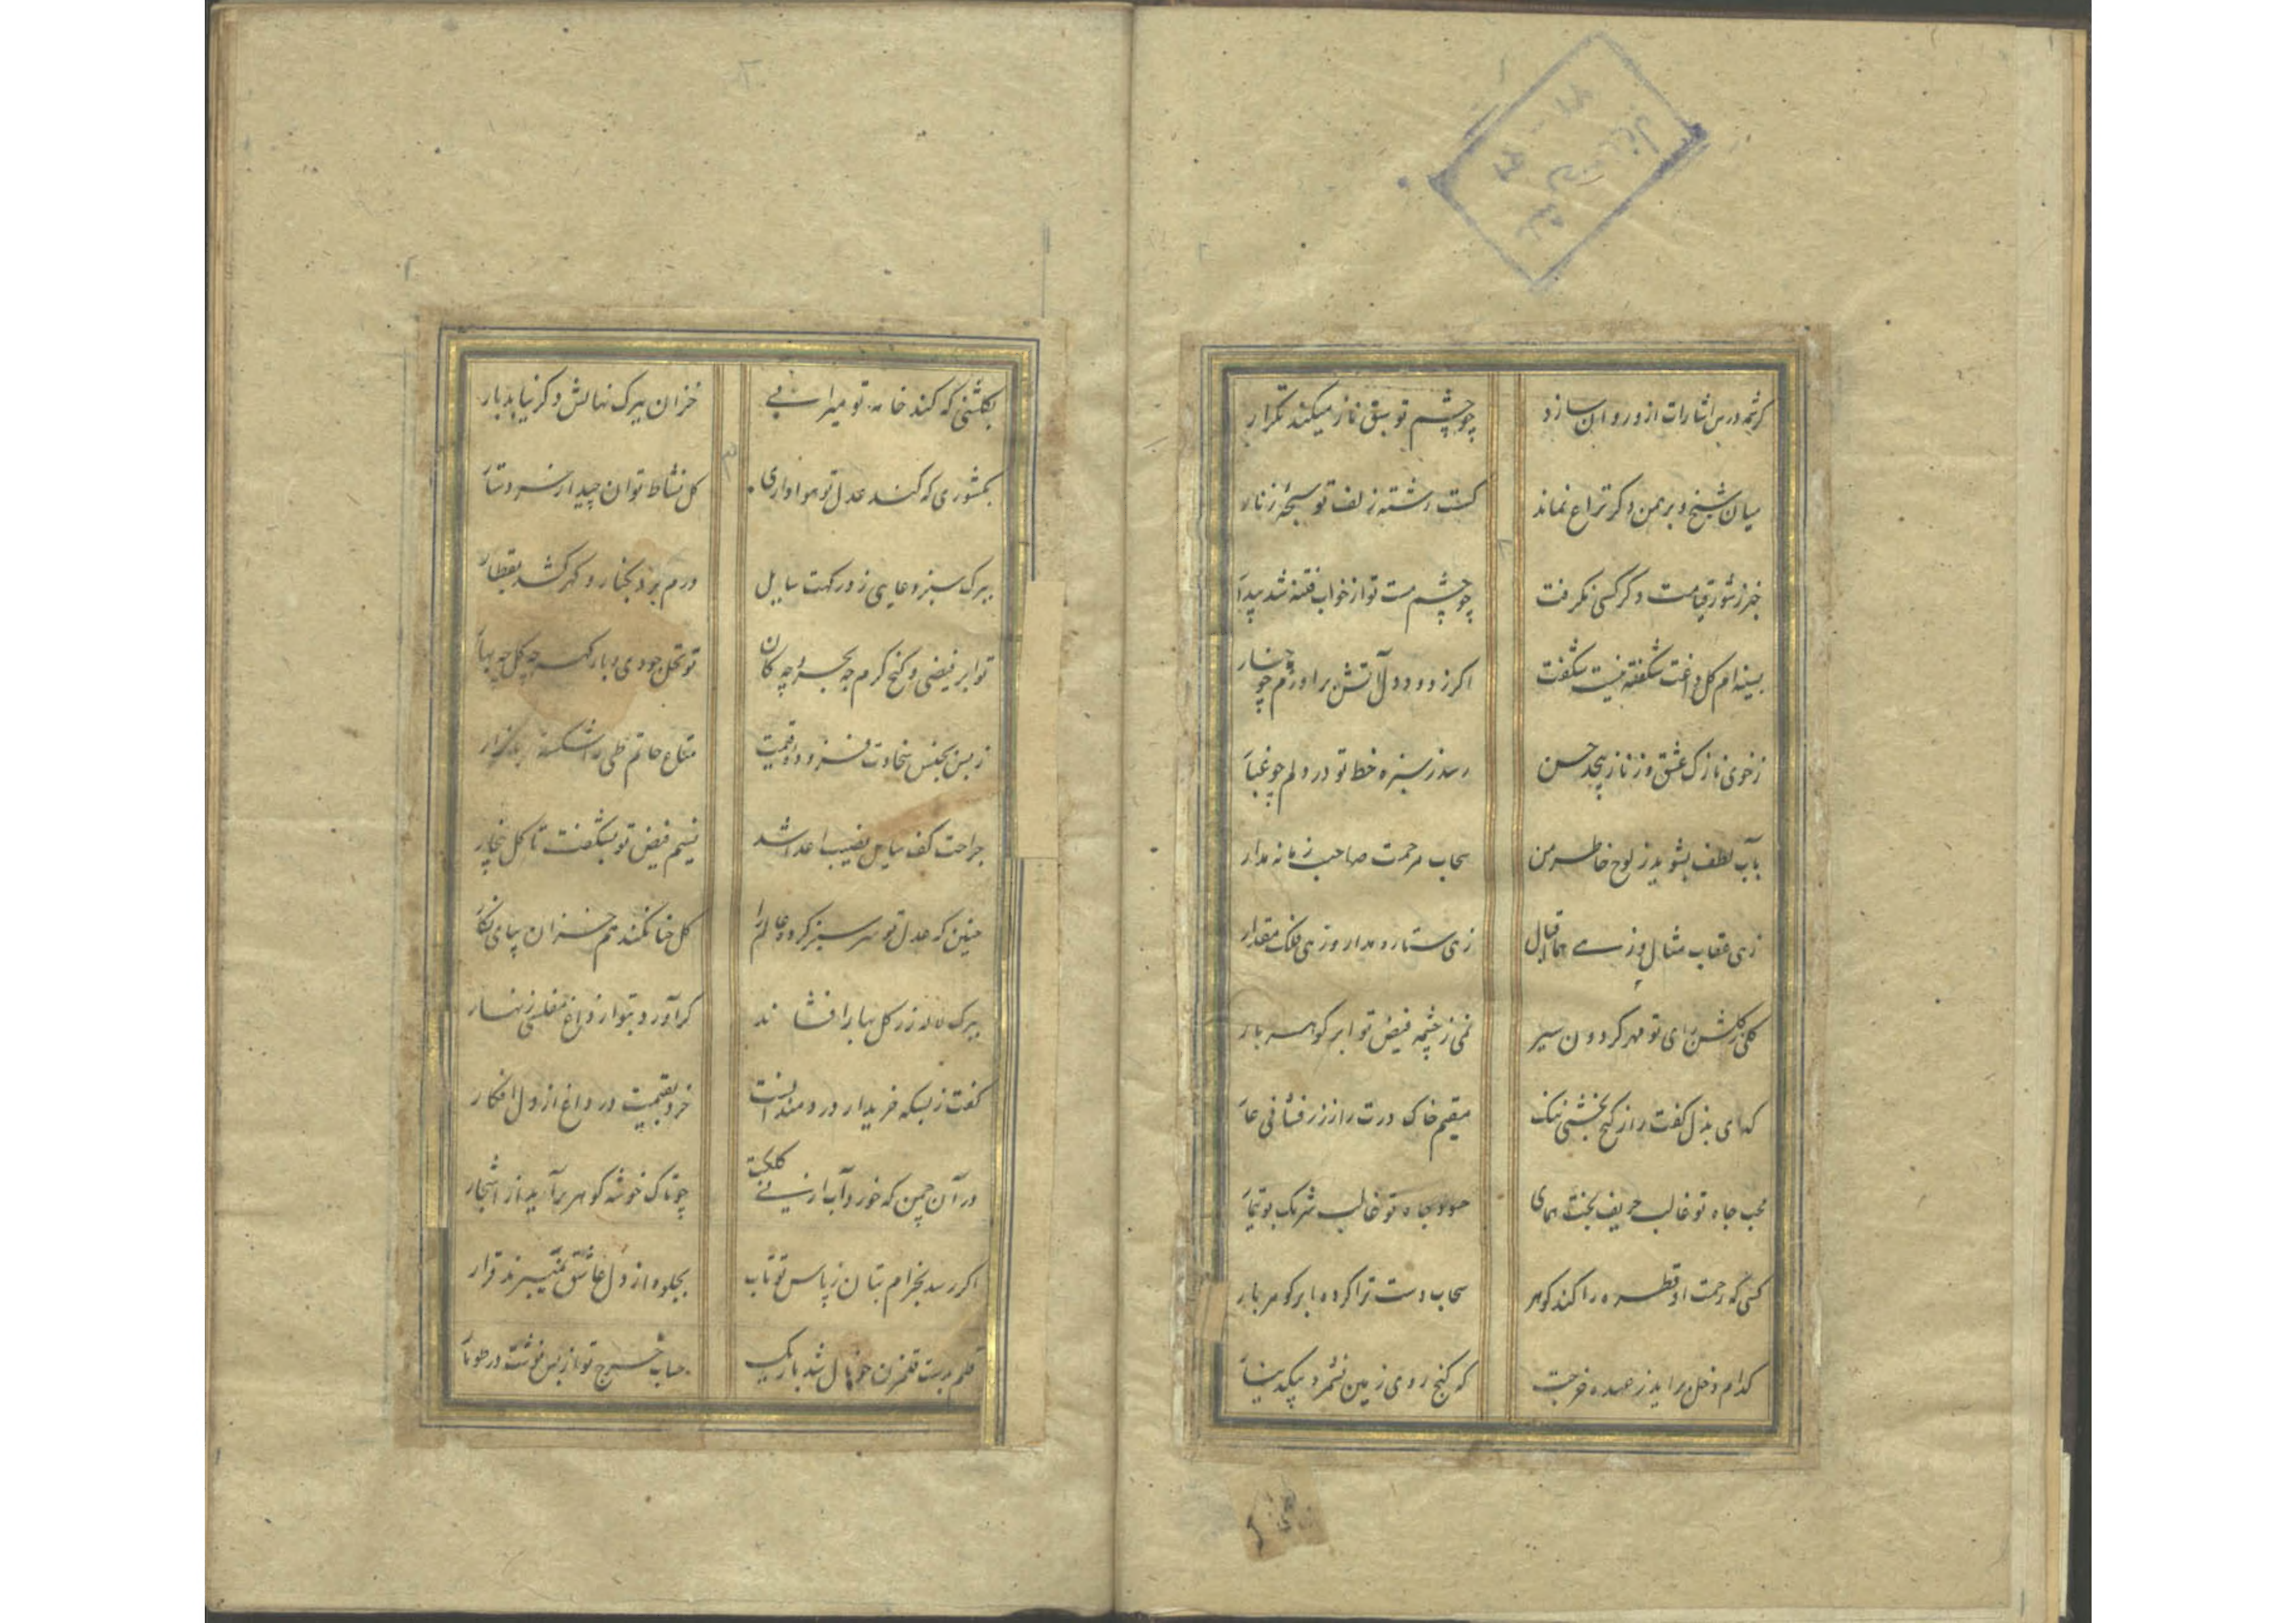 کرشمه درس اشارات از و روان سازد
چو چشم تو سبق ناز میکند تکرار
میان شیخ و برهمن دکر نزاع نماند
کست رشته زلف تو سبحه زنار
خبر ز شور قیامت دکر کسی نکرفت
چو چشم مست تو از خواب فتنه شد بیدار
بسینه ام کل داغت شکفته نیست شکفت
اکر ز دود دل آتش براورم چو چنار
ز خوی نازک عشق و ز ناز بیحد حسن
رسد ز سبزه خط تو در دلم چو غبار
بآب لطف بشوید ز لوح خاطر من
سحاب مرحمت صاحب زمانه مدار
زهی عقاب مثال و زهی هما اقبال
زهی ستاره مدار و زهی فلک مقدار
کلی ز کلشن رای تو مهر کردون سیر
نمی ز چشمه فیض تو ابر کوهر بار
کدای بذل کفت را ز کنج بخشی ننک
مقیم خاک درت را ز زر فشانی عار
محب جاه تو غالب حریف بخت همای
حسود جاه تو غالب شریک بوتیمار
کسی که رحمت او قطره را کند کوهر
سحاب دست ترا کرده ابر کوهر بار
کدام دخل براید ز عهده خرجت
که کنج روی زمین نشمرد بیک دینار
بکلشنی که کند خامه تو میرابی
خزان ببرک نهالش دکر نیابد بار
بکشوری که کند عدل تو هواداری
کل نشاط توان چید از سر دستار
ببرک سبز دعایی ز درکهت سایل
درم برد بخنار و کهر کشد بقطار
تو ابر فیضی و کنج کرم چه بحر و چه کان
تو نخل جودی و بارت کهر چه کل چه بهار
ز بس بجنس سخاوت فزود دوقیمت
متاع حاتم طی را شکسته بازار
جراحت کف سایل نصیب اعدا شد
نسیم فیض تو بشکفت تا کل بیخار
چنین که عدل تو سر سبز کرد عالم را
کل حنا نکند هم خزان بپای نکار
ببرک لاله زر کل بها را فشاند
کر آورد بتو از داغ مفلسی زنهار
کفت ز بسکه خریدار دردمندانست
خرد بقیمت در داغ از دل افکار
در آن چمن که خورد آب از نی کلکت
چو تاک خوشه کوهر برآید از اشجار
اکر رسد بخرام بتان ز پاس تو تاب
بجلوه از دل عاشق نمیبرند قرار
قلم بدست قلمزن چو نال شد باریک
حساب خرج تو از بس نوشت در طومار